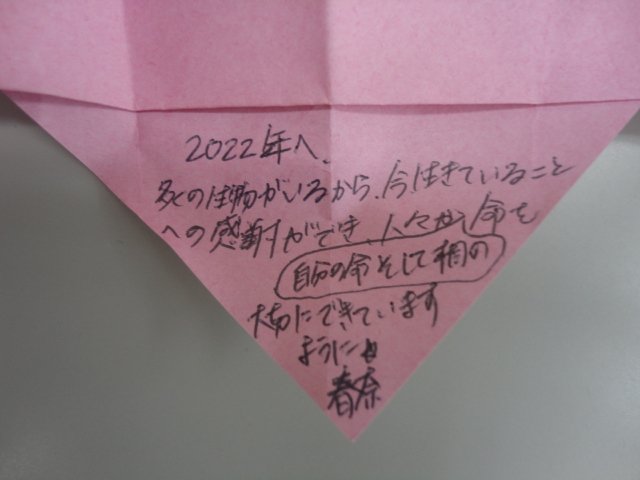 2022年へ、
多くの生物がいるから、今生きていること
への感謝ができ、人々が、命を
自分の命そして相の
大切にできています
ように
春奈